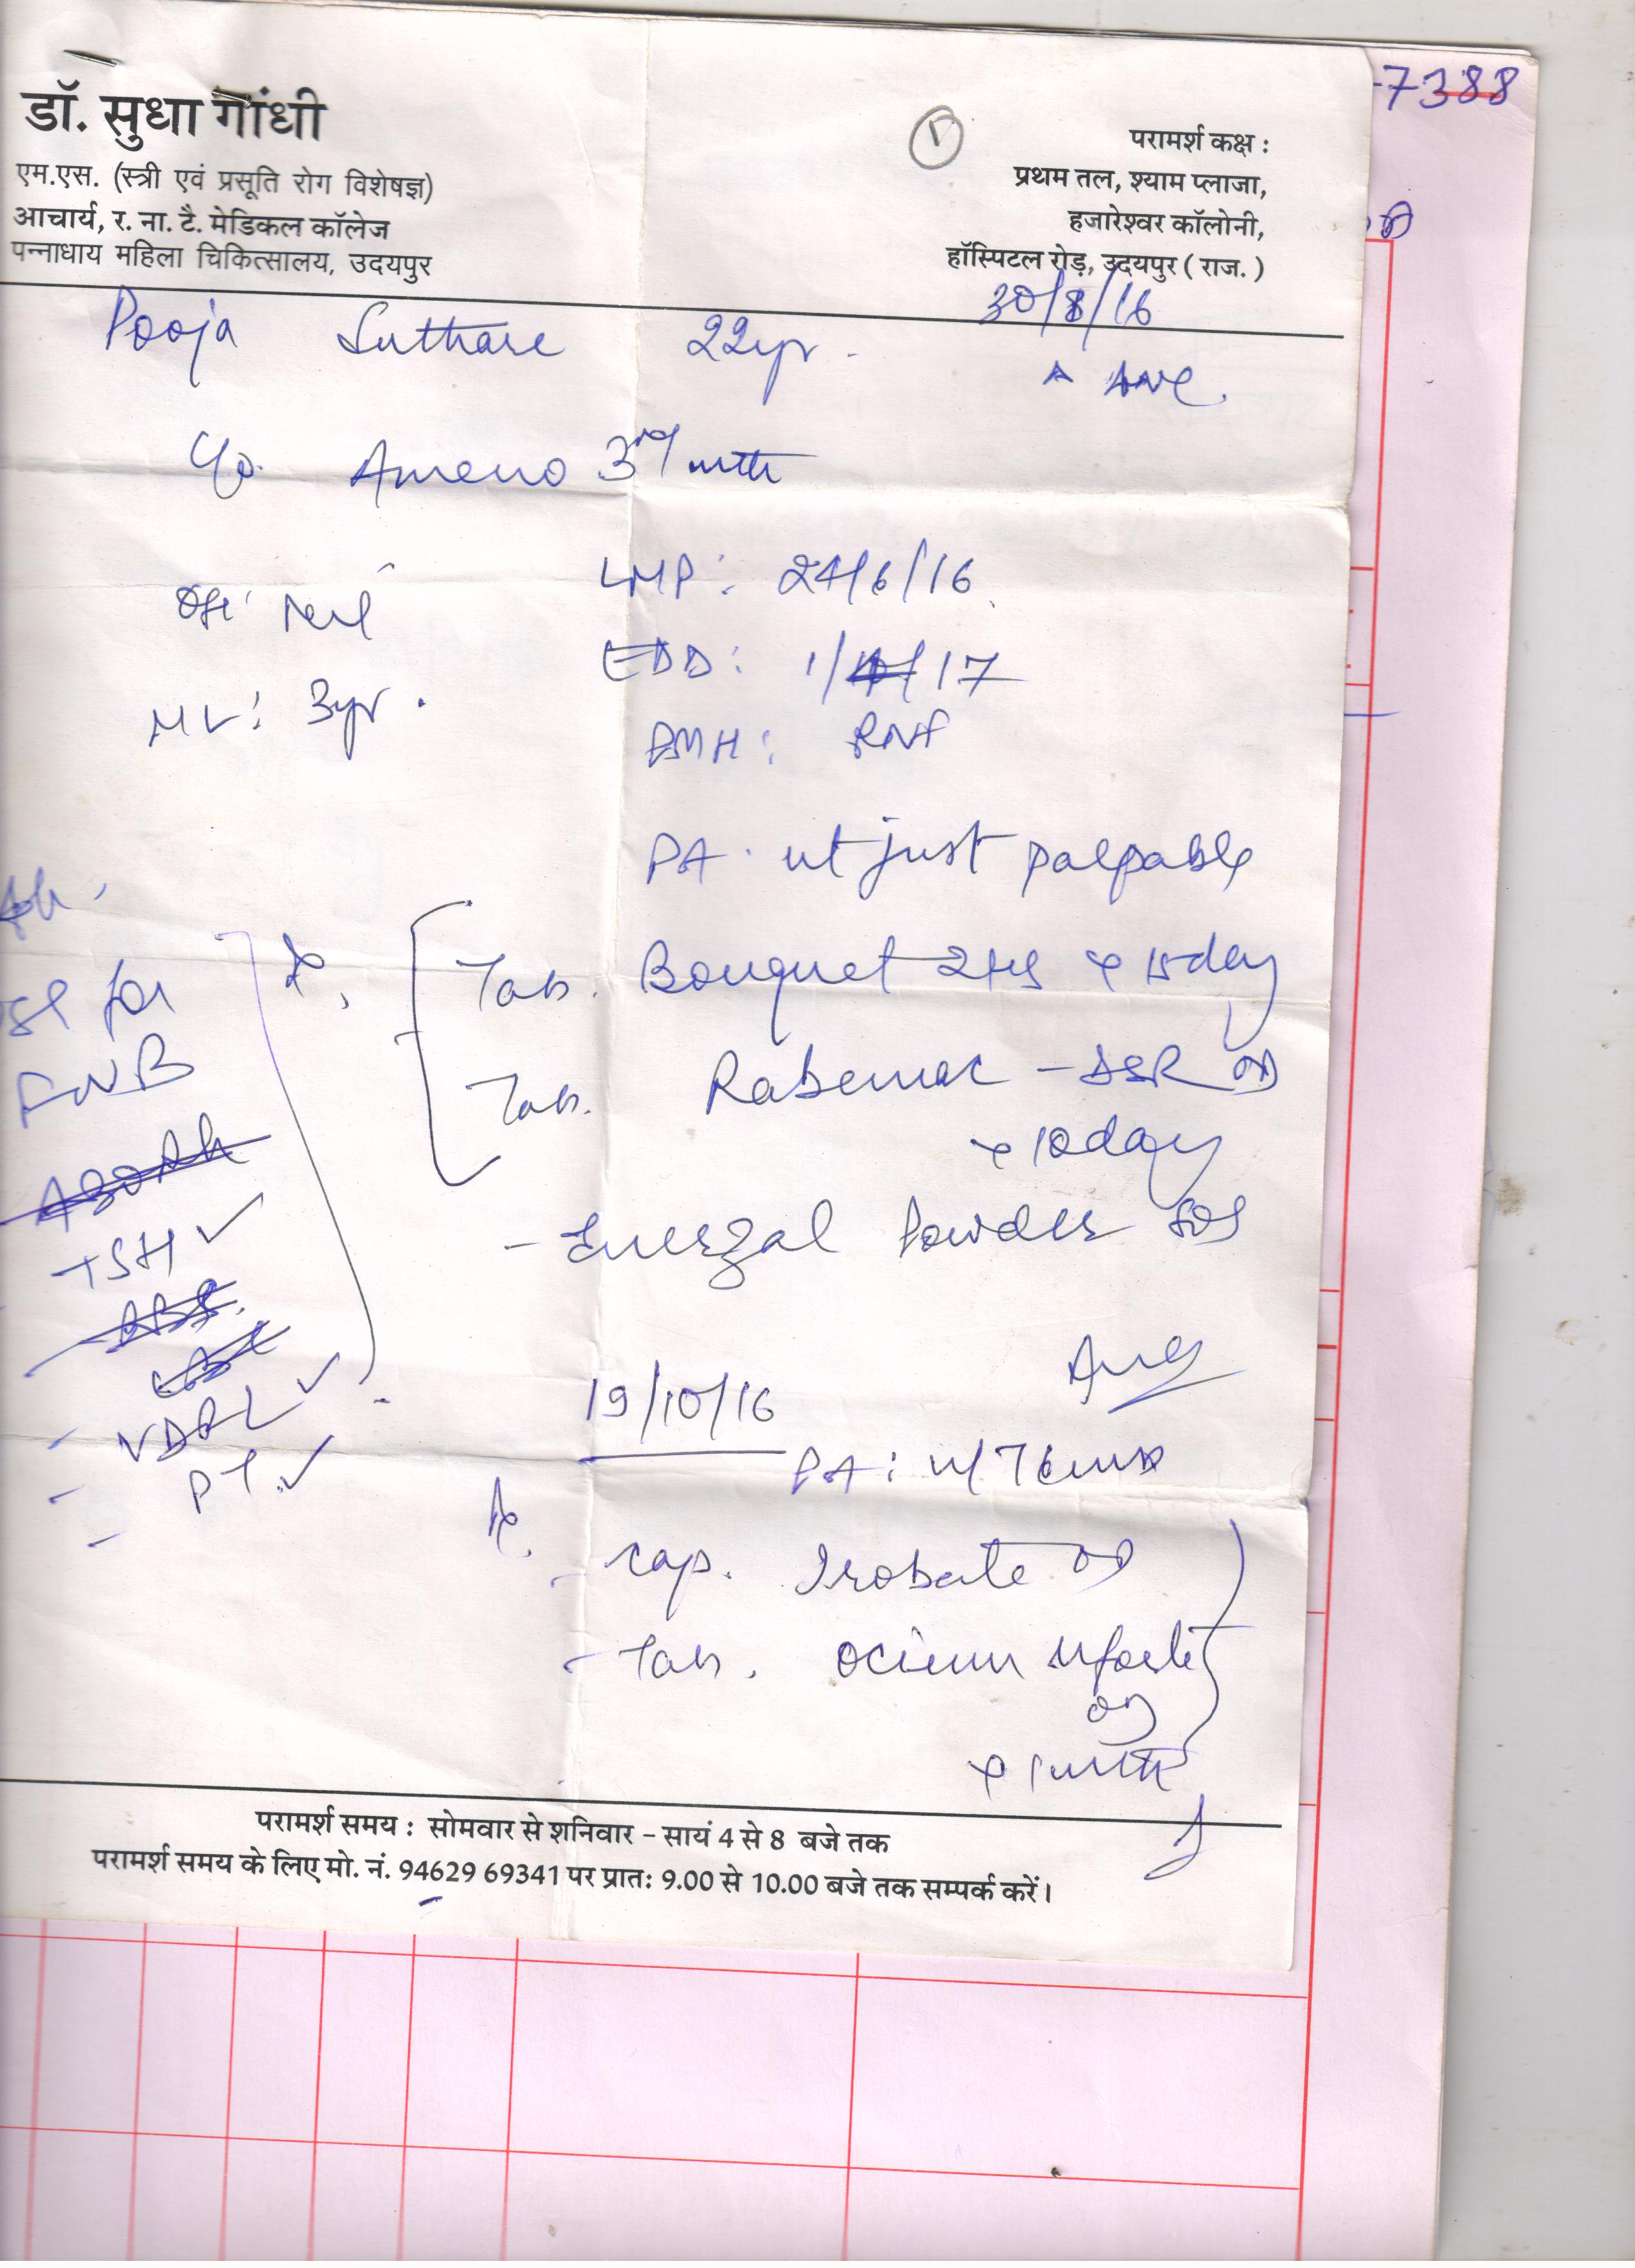 7388
डॉ. सुधा गांधी
एम.एस. (स्त्री एवं प्रसूति रोग विशेषज्ञ)
आचार्य, र. ना. टै. मेडिकल कॉलेज
पन्नाधाय महिला चिकित्सालय, उदयपुर
परामर्श कक्ष :
प्रथम तल, श्याम प्लाजा,
हजारेश्वर कॉलोनी,
हॉस्पिटल रोड़, उदयपुर ( राज. )
30/8/16
Pooja Suthare 22yr.
ANC
C/o. Ameno 3rd mth
OH: Nil
LMP: 24/6/16
EDD: 1/4/17
ML: 3yr.
PMH: RNF
PA. ut just palpable
Tab. Bouquet x 15day
Tab. Rabemac - DSR OD
x 10day
- Enerzal Powder SOS
for
FWB
ABORh
TSH ✓
VDRL ✓
PT. ✓
19/10/16
PA: ut
Rx.
- Cap. Irobate OD
- Tab. Ocium forte
OD
x 1 mth
परामर्श समय : सोमवार से शनिवार - सायं 4 से 8 बजे तक
परामर्श समय के लिए मो. नं. 94629 69341 पर प्रातः 9.00 से 10.00 बजे तक सम्पर्क करें।